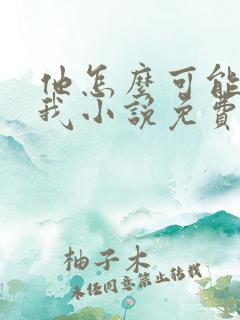 他怎麽可能
我小說免費
柚子木
未经同意禁止转载